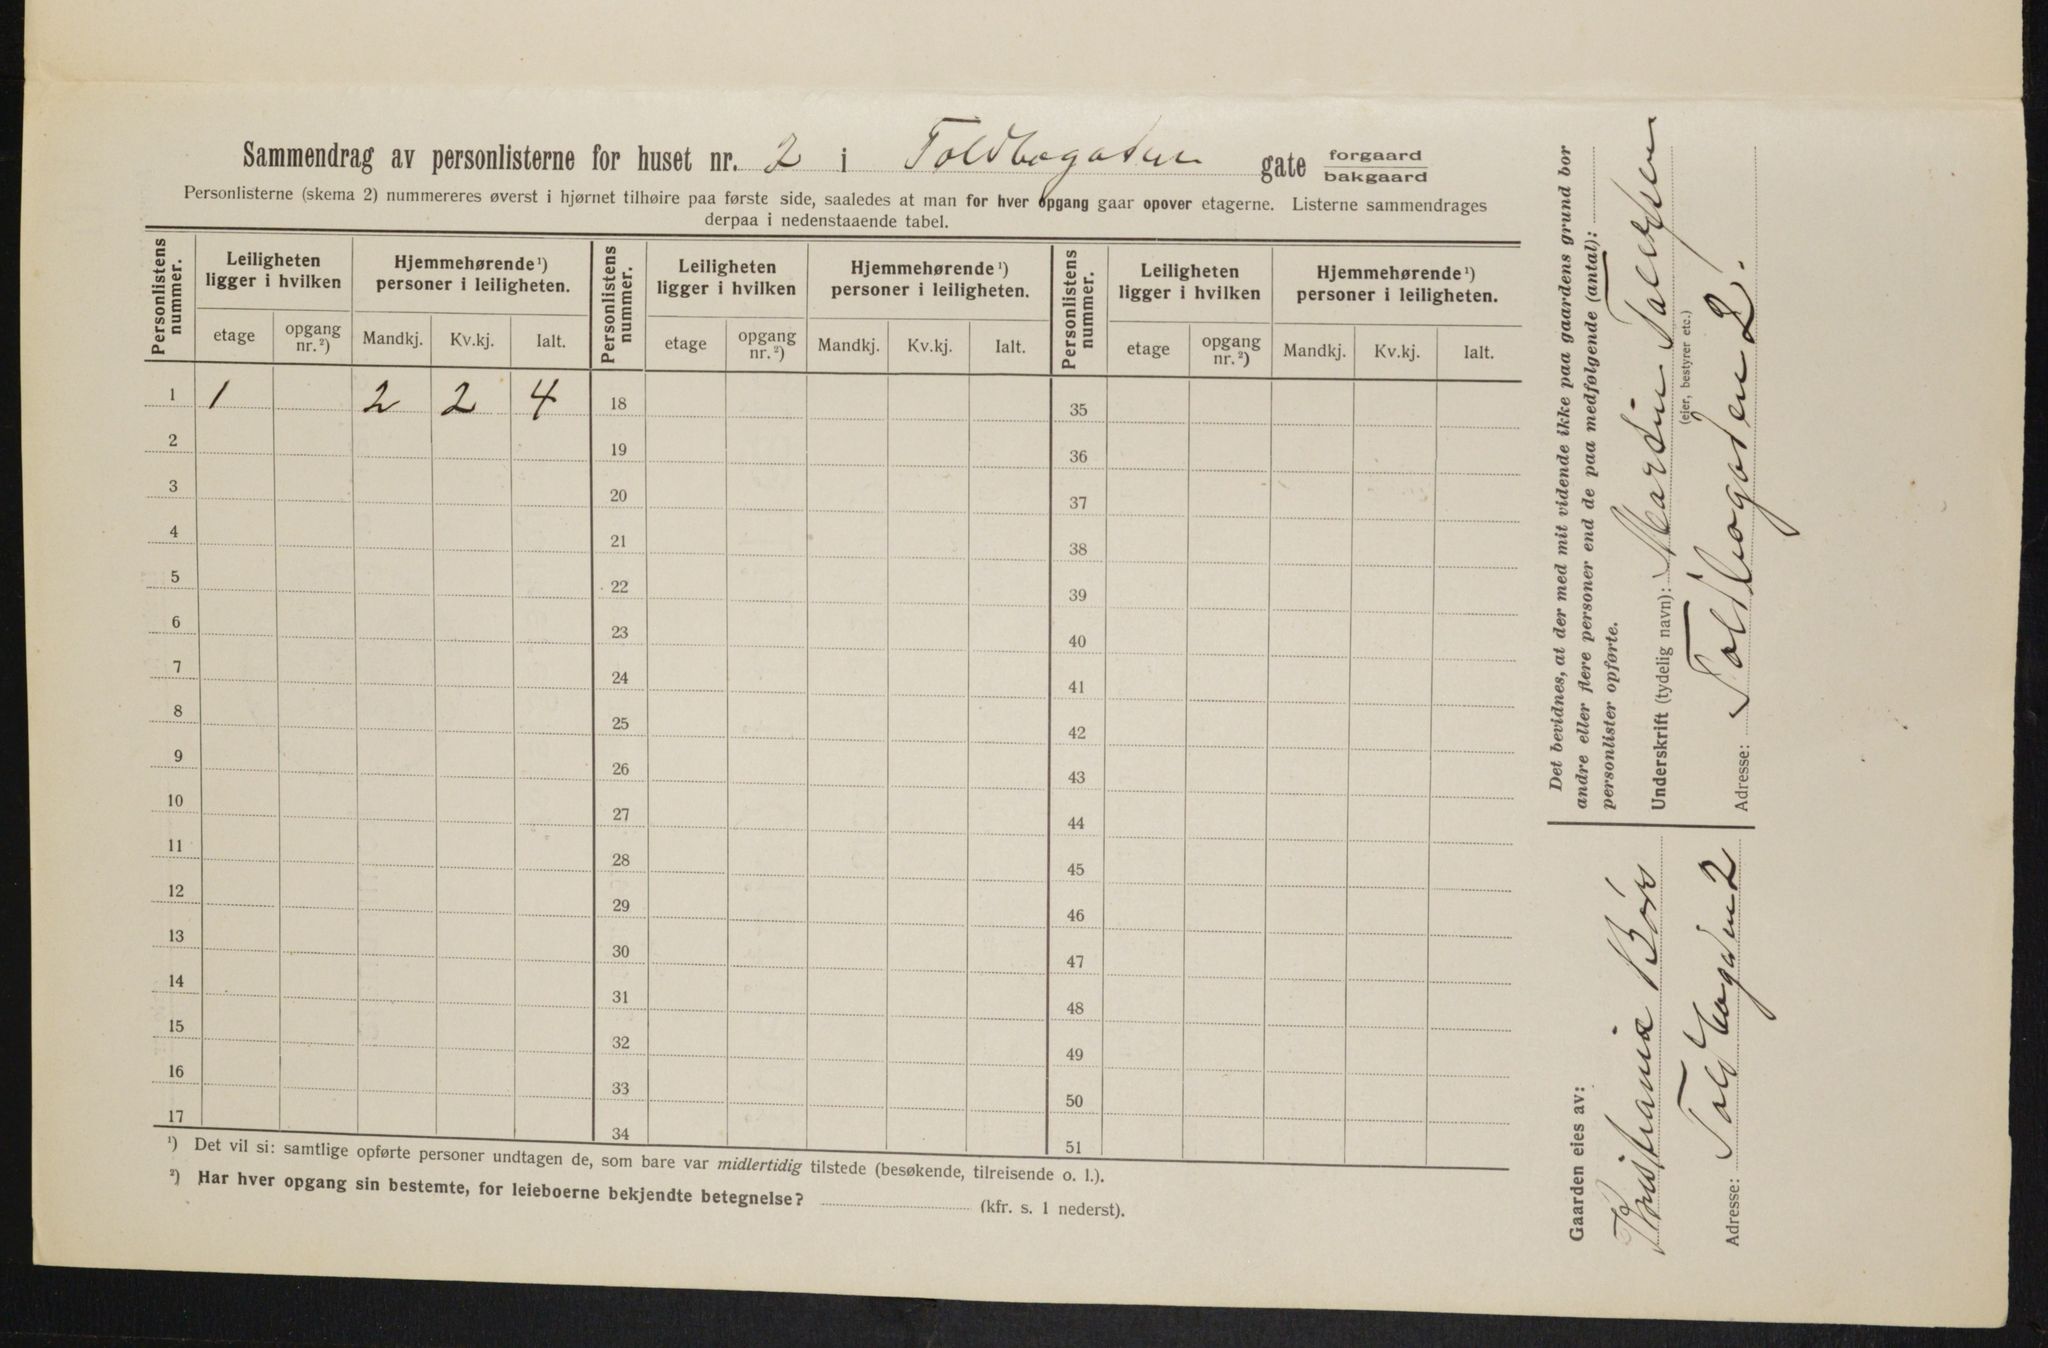 Sammendrag av personlisterne for huset nr. 2 i Toldbogaten gate forgaard bakgaard
Personlisterne (skema 2) nummereres øverst i hjørnet tilhøire paa første side, saaledes at man for hver opgang gaar opover etagerne. Listerne sammendrages
derpaa i nedenstaaende tabel.
Personlistens nummer. Leiligheten ligger i hvilken Hjemmehørende¹) personer i leiligheten. Personlistens nummer. Leiligheten ligger i hvilken Hjemmehørende¹) personer i leiligheten. Personlistens nummer. Leiligheten ligger i hvilken Hjemmehørende¹) personer i leiligheten.
etage opgang nr.²) Mandkj. Kv.kj. Ialt. etage opgang nr.²) Mandkj. Kv.kj. Ialt. etage opgang nr.²) Mandkj. Kv.kj. Ialt.
1 1 2 2 4 18 35
2 19 36
3 20 37
4 21 38
5 22 39
6 23 40
7 24 41
8 25 42
9 26 43
10 27 44
11 28 45
12 29 46
13 30 47
14 31 48
15 32 49
16 33 50
17 34 51
¹) Det vil si: samtlige opførte personer undtagen de, som bare var midlertidig tilstede (besøkende, tilreisende o. l.).
²) Har hver opgang sin bestemte, for leieboerne bekjendte betegnelse? (kfr. s. 1 nederst).
Det bevidnes, at der med mit vidende ikke paa gaardens grund bor
andre eller flere personer end de paa medfølgende (antal):
personlister opførte.
Underskrift (tydelig navn): Martin
(eier, bestyrer etc.)
Adresse: Toldbogaten 2.
Gaarden eies av:
Kristiania Børs
Adresse: Toldbogaten 2